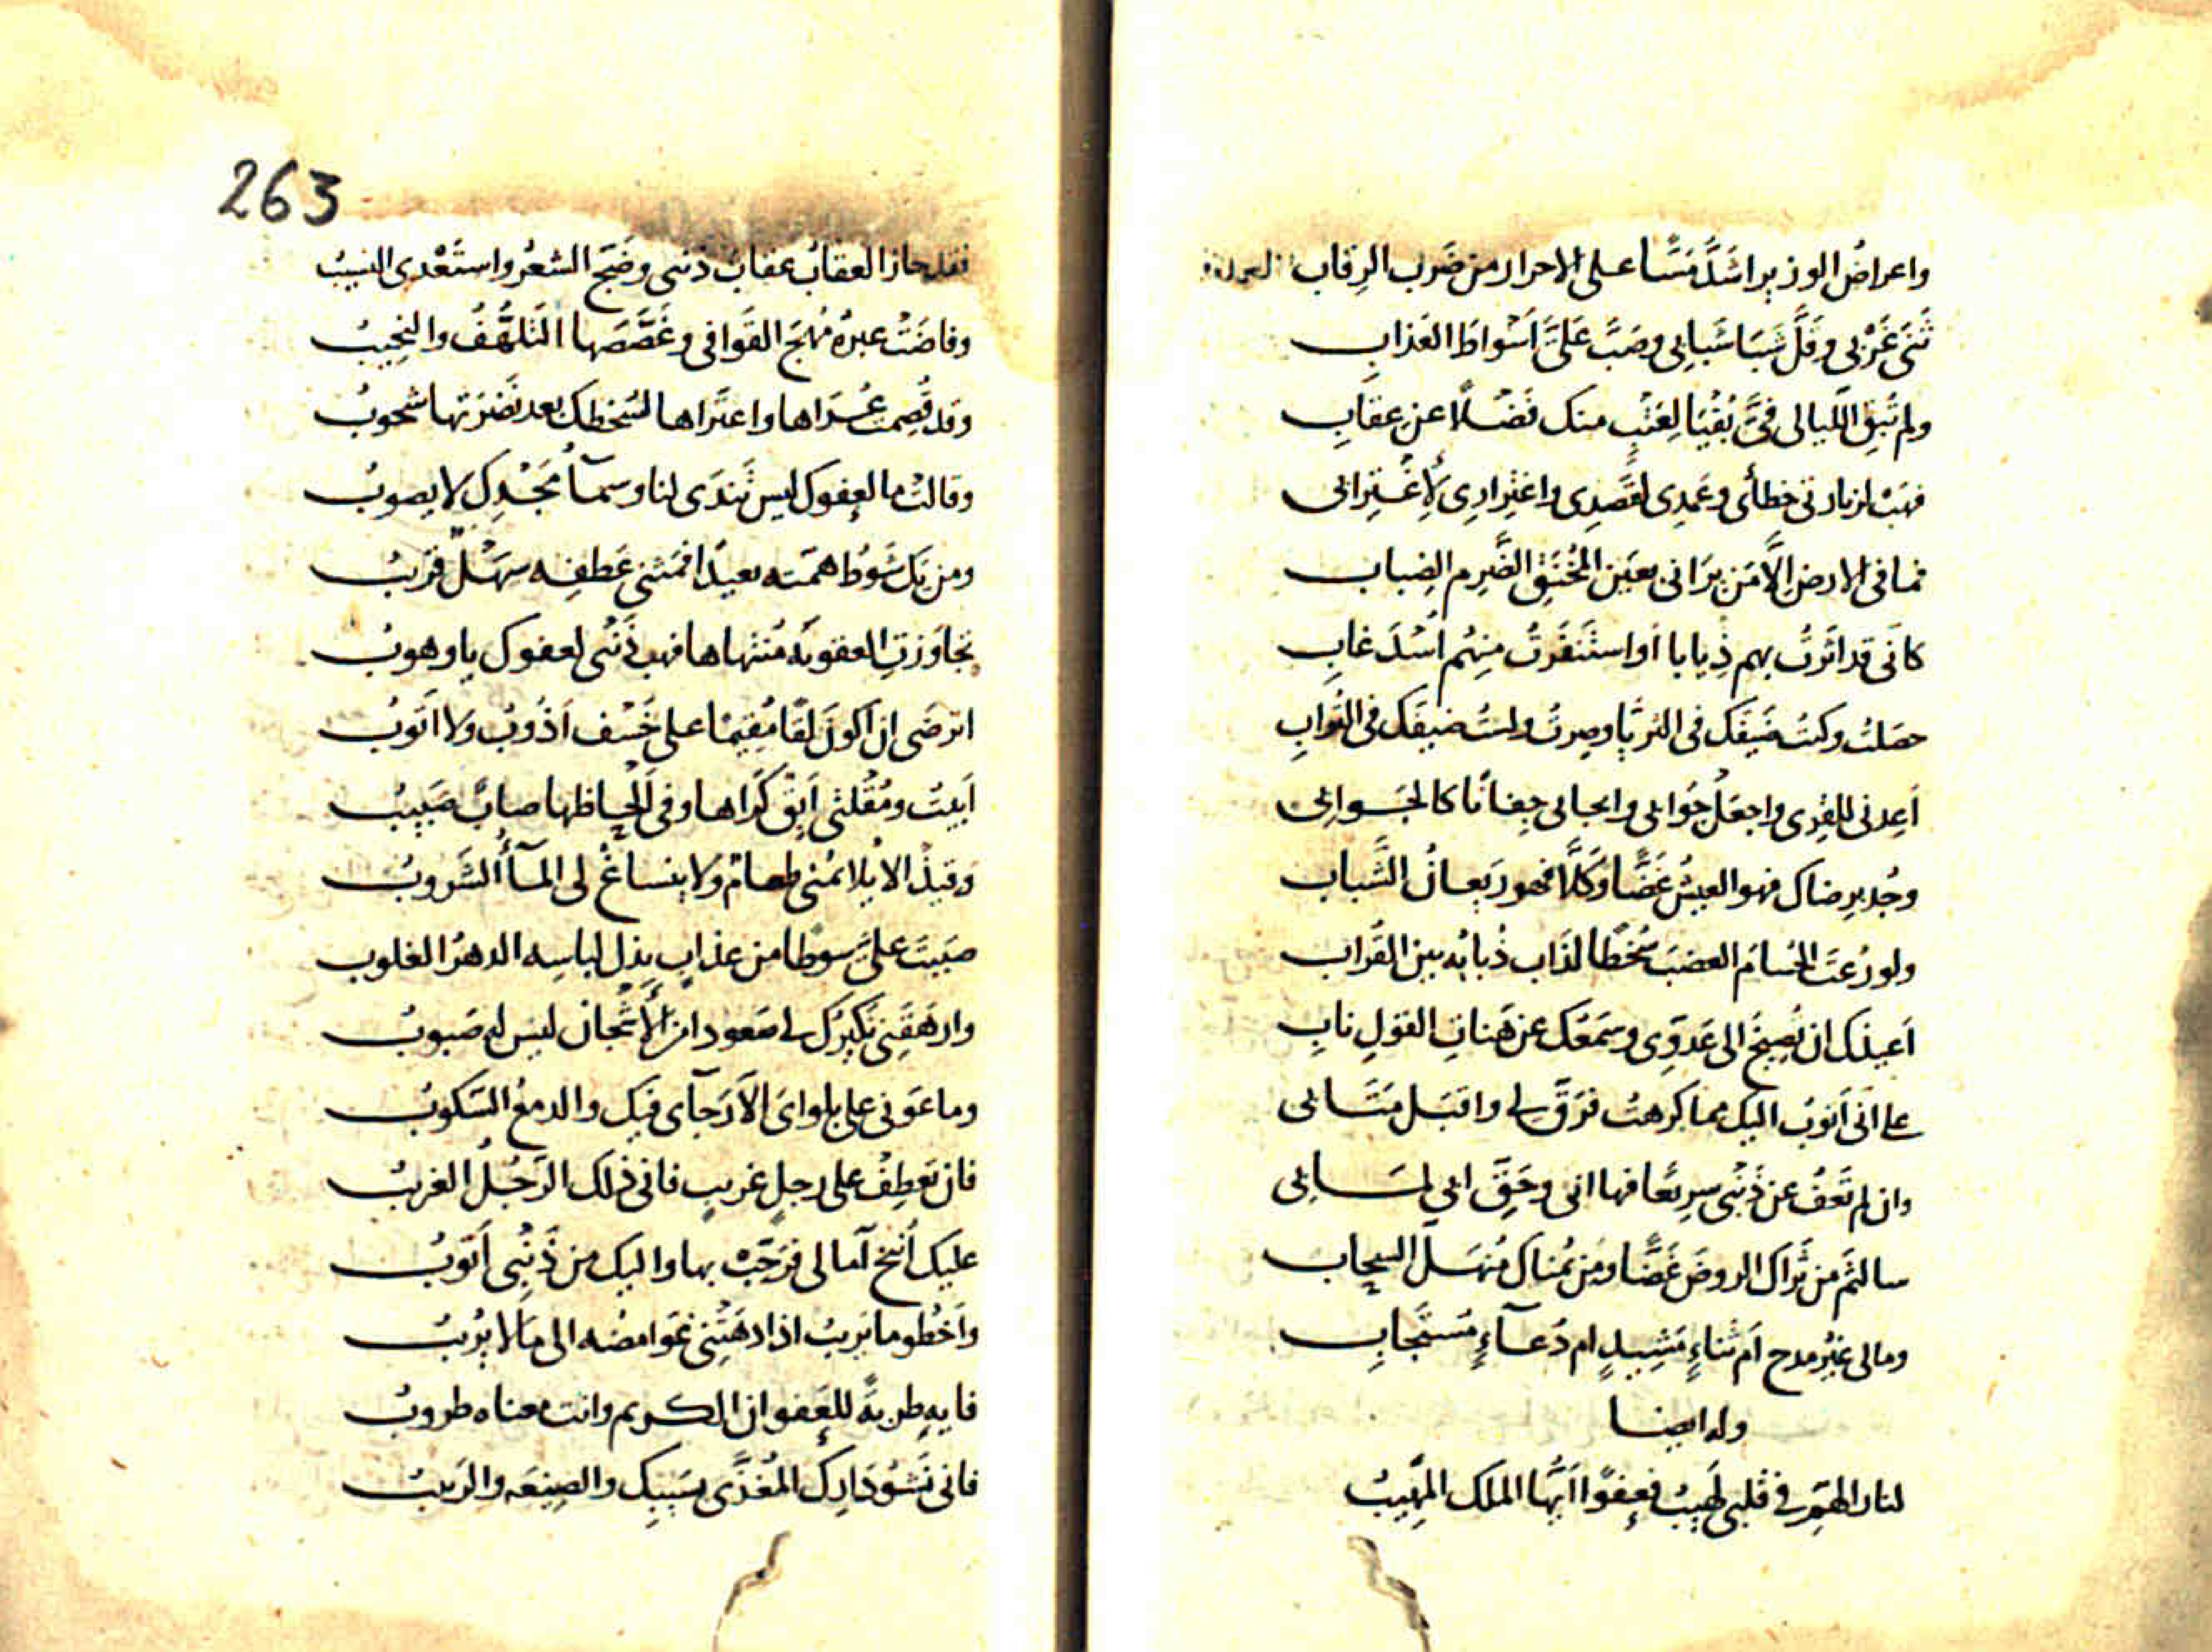 واعراضُ الوزير اشدُّ مَسًّا على الاحرار من ضَرب الرِقاب
ثَنَى غَرْبى وفَلَّ شَبَا شَبابى وصَبَّ عَلَىَّ اَسْواطَ العَذابِ
ولم تُبقِ اللّيالى فىَّ بُقْيَا لِعَتْبٍ منك فَضْلًا عن عقابِ
فهَبْ لى خطأى وعَمدِى لقَصدِى واغتِرارِى لِأغْتِرابى
فما فى الارضِ الَّا مَن يَرَانى بعَينِ المُحْنَقِ الضَّرِمِ الضِباب
كأنى قد اثَرتُ بهم ذِيابا أو استَنفَرتُ منهُم اُسْدَ غابِ
حصَلتُ وكنتُ ضَيفَك فى الثريّا وصِرتُ ولستُ ضيفَك فى التُرابِ
اَعِدنى للقِرى واجعَلْ جَوابى وايجابى جِفانًا كالجَوابى
وجُد برِضاك فهو العيشُ غَضًّا وكَلَّا فهو رَيعانُ الشَّبابِ
ولو رُعتَ الحُسامَ العضبَ سُخطًا لذَاب ذُبابُه بين القُراب
اُعيذك ان تُصِيخَ الى عَدوِّى وسَمعُك عن هَناتِ القولِ نابِ
على انّى اَتوبُ اليك مما كرهتُ فرَقَّ لى واقبَل مَتَابى
وان لم تَعفُ عن ذَنْبى سريعًا فها انى وحَقِّ ابى لِمَابى
سالثَمُ من ثَراك الروضَ غَضًّا ومن يُمناك مُنهَلَّ السحاب
ومالى غيرُ مدحٍ اَم ثناءٍ مَشِيدٍ ام دُعآءٍ مُستَجابِ
وله ايضا
لنار الهَمِّ فى قلبى لَهيبُ فعفوًا اَيّها الملك المَهِيبُ
263
فقد حاز العقابُ عقابُ ذنبى وضَجَّ الشعرُ واستَعْدى النسيبُ
وفاضَتْ عبرةً مُهَجُ القَوافى وغَصَّصَها التَلهُّفُ والنحِيبُ
وقد قُصِمت عُراها واعتَراها لسُخطك بعد نَضرَتها شحوبُ
وقالت ما لعفوك ليس يَندَى لنا وسمآءُ مَجْدِك لا يصوبُ
ومن يَك شَوطُ همّته بعيدًا فمَثنى عَطفِه سَهْلٌ قَريبُ
تجاوَزتِ العقوبةُ مُنتهاها فهب ذَنْبى لعفوك يا وهوبُ
اترضَى ان اَكونَ لَقًا مُقِيمًا على خَسْف اَذُوبُ ولا اتوبُ
اَبِيتُ ومُقْلتى اَبَقَ كَراها وفى اَلحاظها صابٌ صَبيبُ
وقيذًا لا يُلائمُنى طعامٌ ولا ينساغُ لى المآءُ الشَروبُ
صبَبتَ علىَّ سوطا من عذابٍ يذِل لباسِه الدهرُ الغلوبُ
وارهَقَنى نكِيرُك لى صَعودا من الأشجان ليس له صَبوبُ
وما عَونى على بلواىَ الّا رَجآى فيك والدمعُ السَكوبُ
فان تَعطِفْ على رجلٍ غريبٍ فانى ذلك الرَجُلُ الغريبُ
عليك اُنيخ آمالى فرَحِّبْ بها واليك من ذَنْبى اَتوبُ
واَخطُو ما يَريبُ اذا دهَتْنى غَوامضُه الى ما لا يُريبُ
فايهِ طربةً للعَفو ان الكريم وانت معناه طروبُ
فانى نَشوُ دَارِك المُغذَّى بسَيبِك والصنِيعة والرَبيبُ